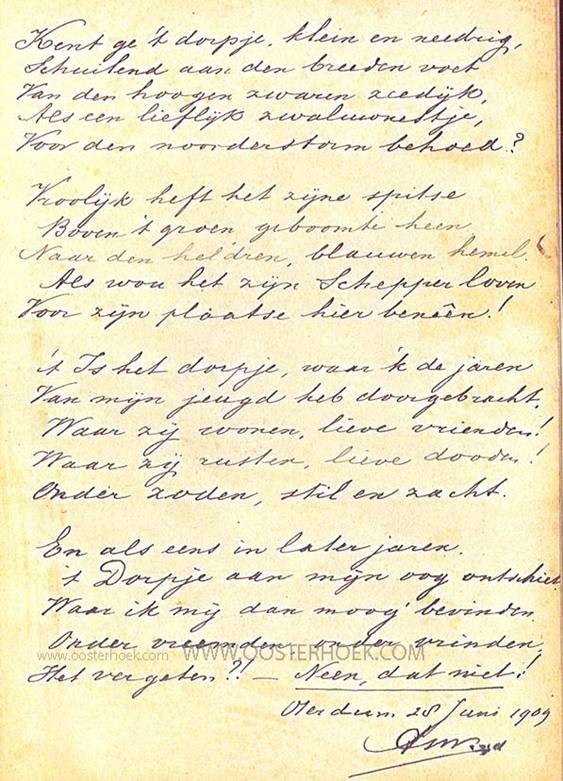 Kent ge 't dorpje, klein en needrig,
Schuilend aan den breeden voet
Van den hoogen zwaren zeedijk,
Als een lieflijk zwaluwnestje,
Voor den noorderstorm behoed?
Vroolijk heft het zijne spitse
Boven 't groen geboomte heen
Naar den hel'dren, blauwen hemel
Als wou het zijn Schepper loven
Voor zijn plaatse hier beneên!
't Is het dorpje, waar 'k de jaren
Van mijn jeugd heb doorgebracht,
Waar zij wonen, lieve vrienden!
Waar zij rusten, lieve dooden!
Onder zoden, stil en zacht.
En als eens in later jaren.
't Dorpje aan mijn oog ontschiet
Waar ik mij dan moog' bevinden
Onder vreemden, onder vrinden,
www.oosterhoek.com WWW.OOSTERHOEK.COM
Het vergeten?! — Neen, dat niet!
Oterdum 28 Juni 1909